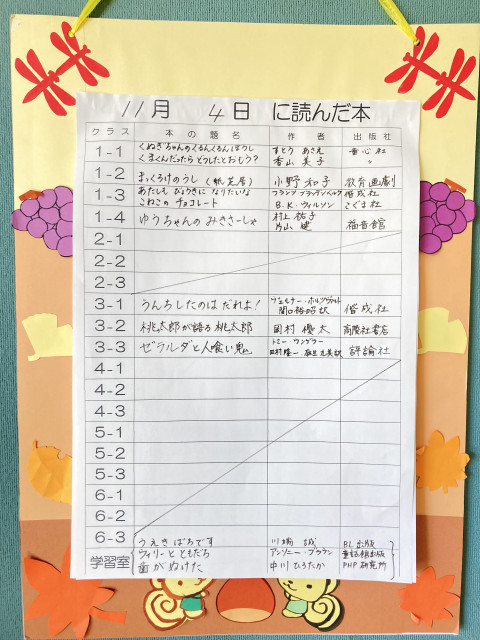 11月 4日 に読んだ本
クラス 本の題名 作者 出版社
1-1 くぬぎちゃんのくるんくるんぼうし すとう あさえ 童心社
くまくんだったら どうしたとおもう? 香山 美子 〃
1-2 まっくろけのうし(紙芝居) 小野 和子 教育画劇
1-3 あたしも びょうきに なりたいな フランツ・ブランデンベルク 偕成社
こねこの チョコレート B.K.ウィルソン こぐま社
1-4 ゆうちゃんの みきさーしゃ 村上 祐子 福音館
片山 健
2-1
2-2
2-3
3-1 うんちしたのは だれよ! ヴェルナー・ホルツヴァルト 偕成社
関口裕昭 訳
3-2 桃太郎が語る 桃太郎 岡村 優太 高陵社書店
3-3 ゼラルダと人喰い鬼 トミー・ウンゲラー 評論社
田村隆一 麻生九美 訳
4-1
4-2
4-3
5-1
5-2
5-3
6-1
6-2
6-3 うえきばちです 川端 誠 BL出版
学習室 ウィリーと ともだち アンソニー・ブラウン 童話館出版
歯がぬけた 中川 ひろたか PHP研究所